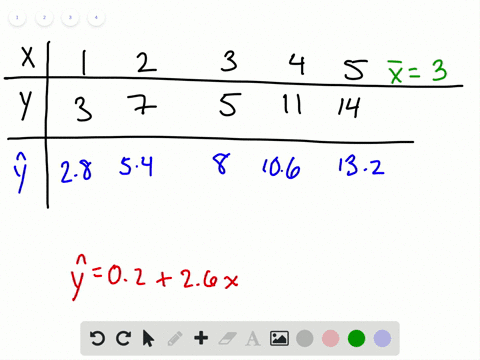 1 2 3 4
X 1 2 3 4 5 x̄ = 3
Y 3 7 5 11 14
ŷ 2.8 5.4 8 10.6 13.2
ŷ = 0.2 + 2.6x
A